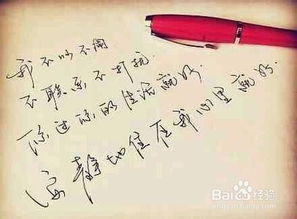 我不吵不闹
不联系不打扰
你过你的生活就好
安静地住在我心里就好
Baidu 经验
jingyan.baidu.com